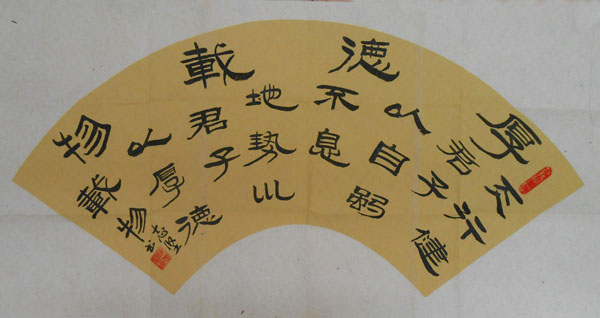 厚
天行健
君子
以自强
德
不息
地勢巛
載
君子
以厚德
物
載物